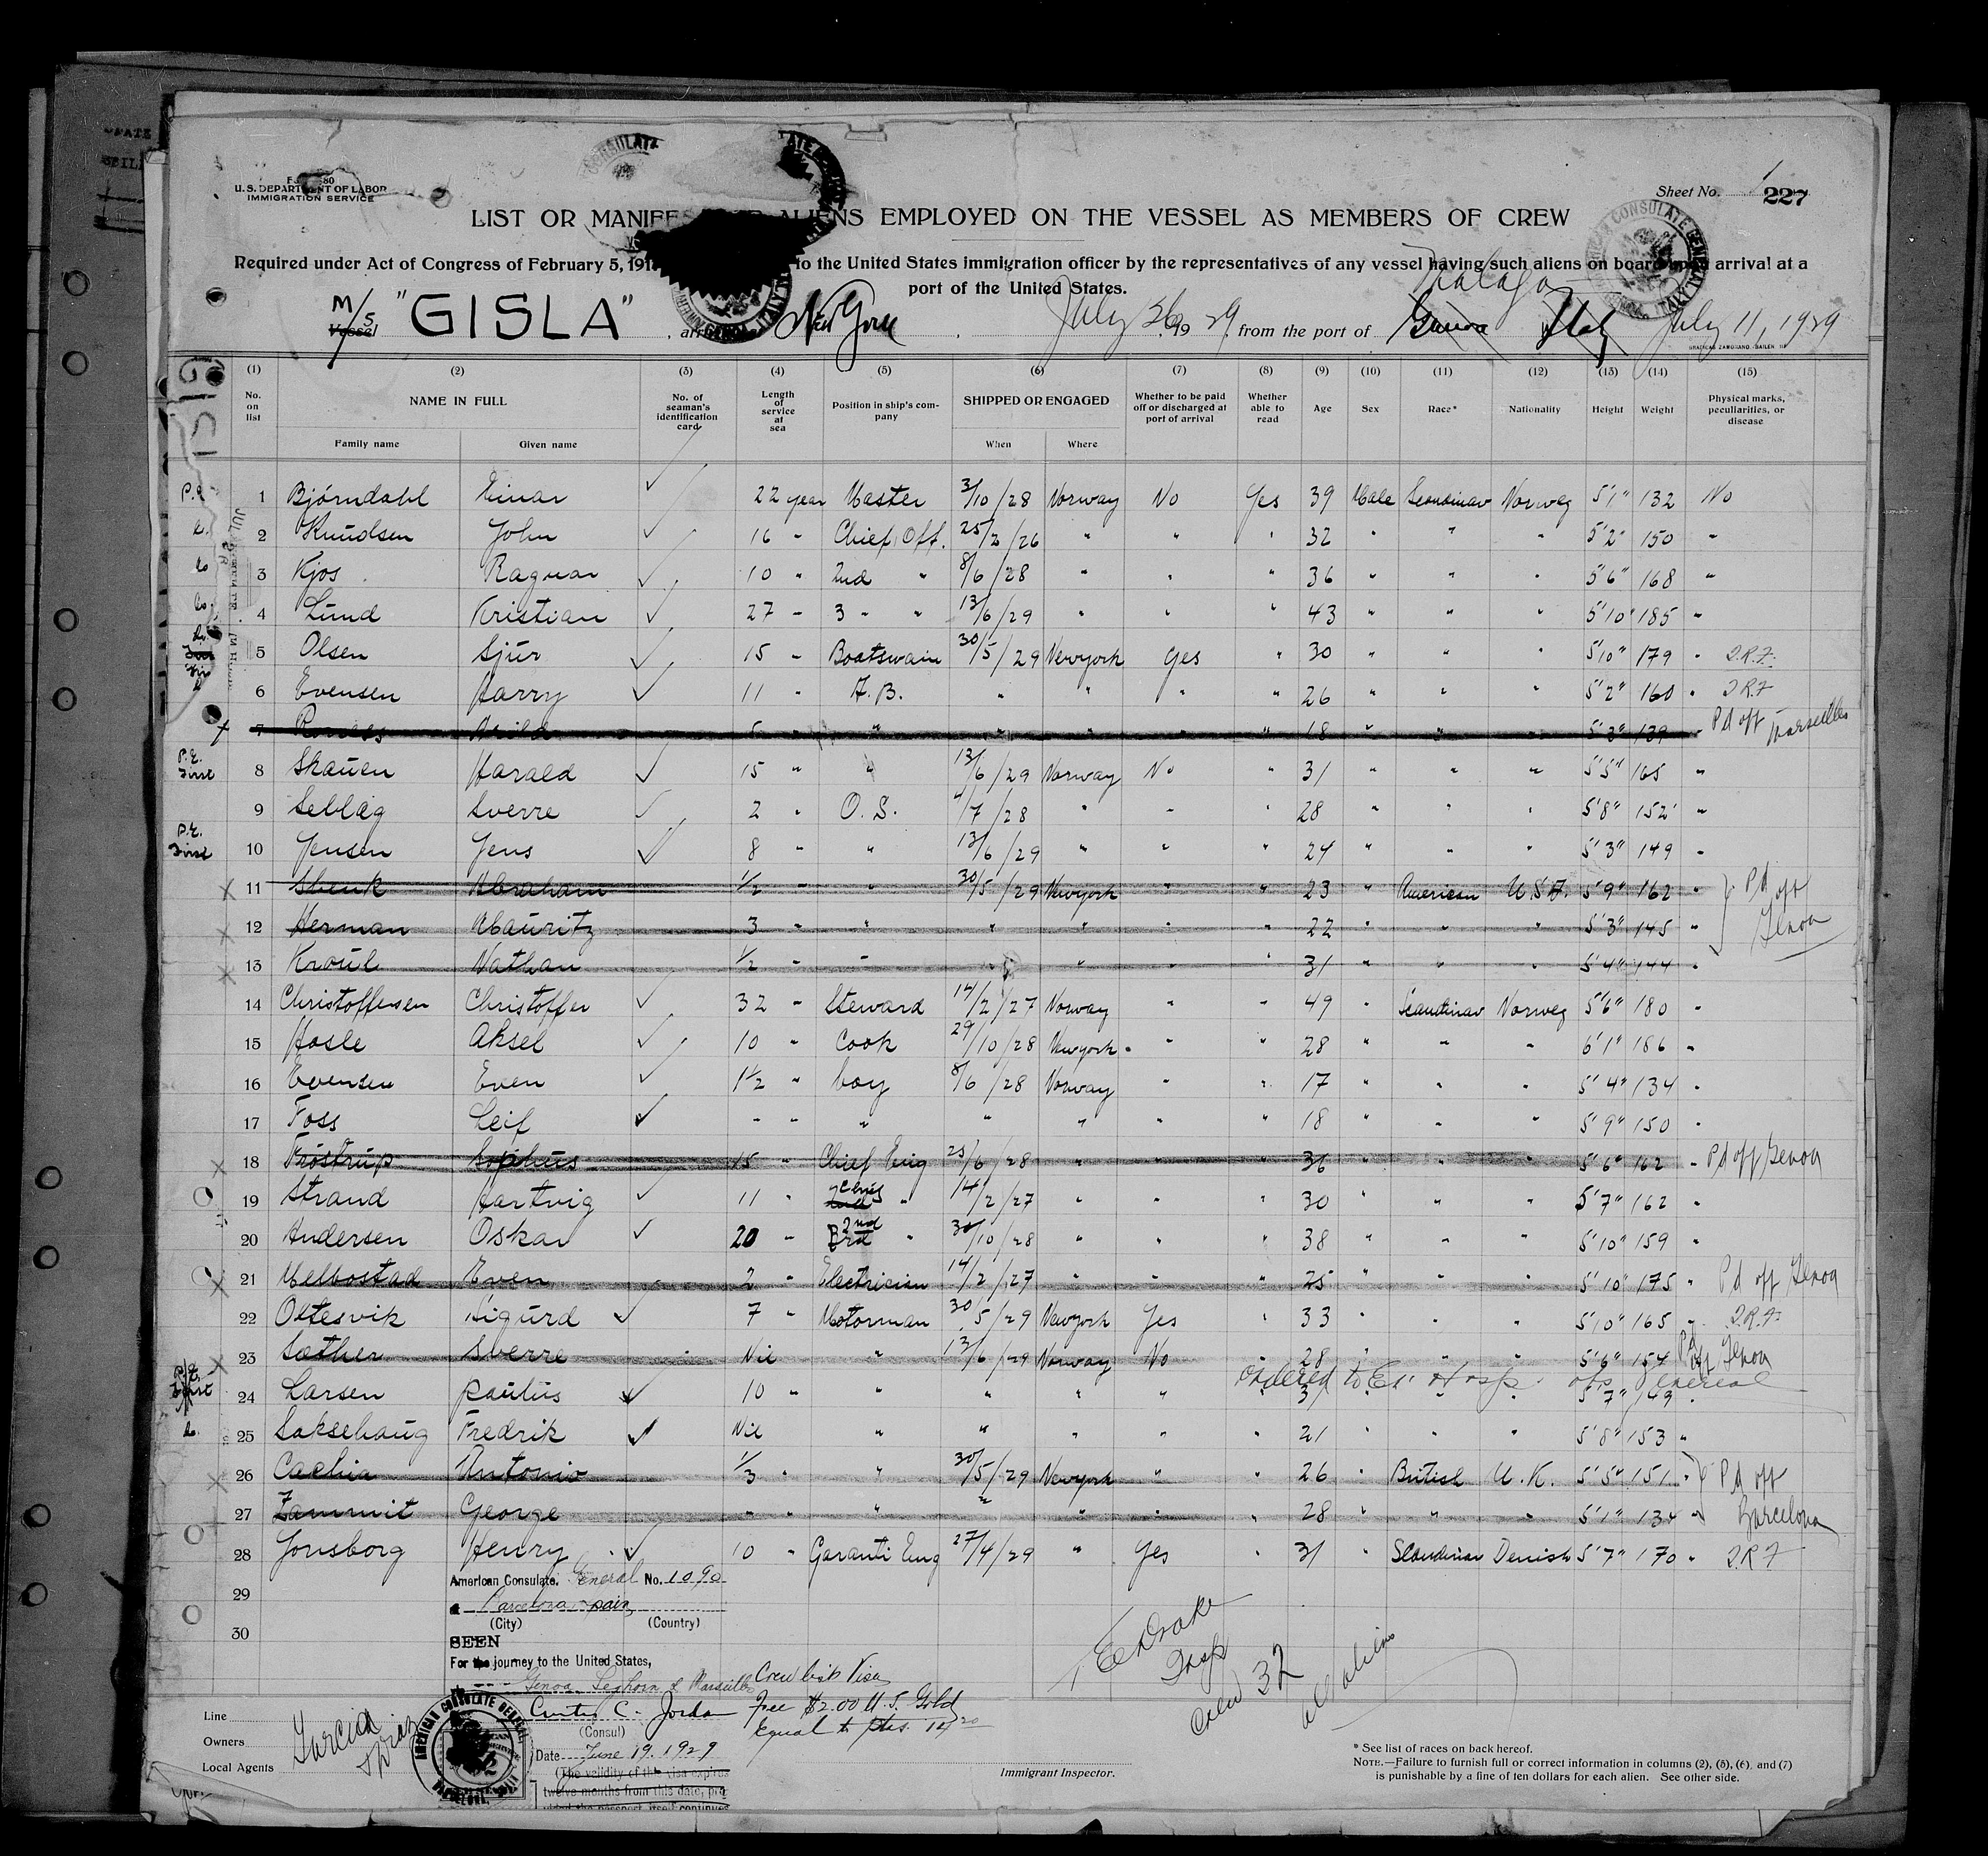 U.S. DEPARTMENT OF LABOR
IMMIGRATION SERVICE
Sheet No. 1
227
LIST OR MANIFEST OF ALIENS EMPLOYED ON THE VESSEL AS MEMBERS OF CREW
Required under Act of Congress of February 5, 191 to the United States immigration officer by the representatives of any vessel having such aliens on board upon arrival at a
port of the United States.
Malaga
M/S Vessel "GISLA", arriving at New York, July 26 1929, from the port of Genoa Italy July 11, 1929
GISL
(1) (2) (3) (4) (5) (6) (7) (8) (9) (10) (11) (12) (13) (14) (15)
No. on list NAME IN FULL No. of seaman's identification card Length of service at sea Position in ship's company SHIPPED OR ENGAGED Whether to be paid off or discharged at port of arrival Whether able to read Age Sex Race* Nationality Height Weight Physical marks, peculiarities, or disease
Family name Given name When Where
1 Bjórndahl Einar 22 year Master 3/10/28 Norway No Yes 39 Male Scandinav Norweg 5'1" 132 No
2 Knudsen John 16 " Chief Off. 25/2/26 " " " 32 " " " 5'2" 150 "
3 Kjos Ragnar 10 " 2nd " 8/6/28 " " " 36 " " " 5'6" 168 "
4 Lund Kristian 27 " 3 " " 13/6/29 " " " 43 " " " 5'10" 185 "
5 Olsen Sjur 15 " Boatswain 30/5/29 Newyork Yes " 30 " " " 5'10" 179 "
6 Evensen Harry 11 " A.B. " " " " 26 " " " 5'2" 160 "
7 5 " " " " " 18 " " " 5'3" 139 " Pd off Marseilles
P.E. First 8 Skauen Harald 15 " " 13/6/29 Norway No " 31 " " " 5'5" 165 "
9 Sellæg Sverre 2 " O.S. /7/28 " " " 28 " " " 5'8" 152 "
P.E. First 10 Jensen Jens 8 " " 13/6/29 " " " 24 " " " 5'3" 149 "
11 Shenk Abraham 1/2 " " 30/5/29 Newyork " " 23 " American U.S.A. 5'9" 162 " Pd off
12 Herman Mauritz 3 " " " " " " 22 " " " 5'3" 145 " Genoa
13 Kroul Nathan 1/2 " " " " " " 31 " " " 5'4" 144 "
14 Christoffersen Christoffer 32 " Steward 14/2/27 Norway " " 49 " Scandinav Norweg 5'6" 180 "
15 Hosle Aksel 10 " Cook 29/10/28 Newyork " " 28 " " " 6'1" 186 "
16 Evensen Even 1 1/2 " boy 8/6/28 Norway " " 17 " " " 5'4" 134 "
17 Foss Leif " " " " " " " 18 " " " 5'9" 150 "
18 Fróstrup Sophus 15 " Chief Eng 25/6/28 " " " 36 " " " 5'6" 162 " Pd off Genoa
19 Strand Hartvig 11 " Chief " 14/2/27 " " " 30 " " " 5'7" 162 "
20 Andersen Oskar 20 " 3rd 2nd " 30/10/28 " " " 38 " " " 5'10" 159 "
21 Melbostad Even 2 " Electrician 14/2/27 " " " 25 " " " 5'10" 175 " Pd off Genoa
22 Oltesvik Sigurd 7 " Motorman 30/5/29 Newyork Yes " 33 " " " 5'10" 165 "
23 Sæther Sverre Nil " 13/6/29 Norway No " 28 " " " 5'6" 154 Pd off Genoa
Ordered to E.I. Hosp.
P/E. First 24 Larsen Paulus 10 " " " " " 31 " " " 5'7" 149 "
25 Saksehaug Fredrik Nil " " " " " 21 " " " 5'8" 153 "
26 Cachia Antonio 1/3 " " 30/5/29 Newyork " " 26 " British U.K. 5'5" 151 " Pd off
27 Zammit George " " " " " " " 28 " " " 5'1" 134 " Barcelona
28 Jonsborg Henry 10 " Garanti Eng 27/4/29 " Yes " 31 " Scandinav Denish 5'7" 170 "
29
30
American Consulate General No. 1090
Barcelona Spain
(City) (Country)
SEEN
For the journey to the United States,
Genoa, Leghorn & Marseilles
Curtis C. Jordan
(Consul)
Date June 19, 1929
(The validity of this visa expires
twelve months from this date, pro
vided the passport itself continues
Crew list Visa
Fee $2.00 U.S. Gold
Equal to ptas. 14.20
AMERICAN CONSULATE GENERAL
E Drake
Insp
Crew 32
Line
Owners
Local Agents
Garcia & Diaz
Immigrant Inspector.
* See list of races on back hereof.
NOTE.—Failure to furnish full or correct information in columns (2), (5), (6), and (7)
is punishable by a fine of ten dollars for each alien. See other side.